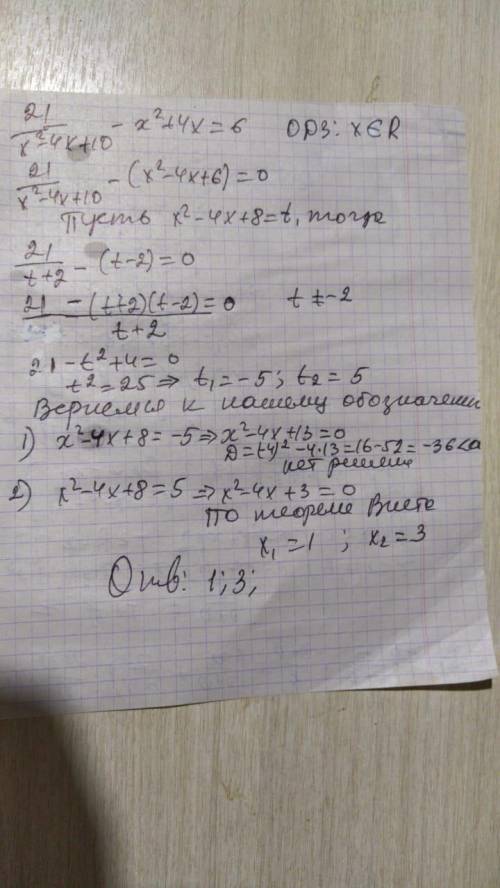 21/(x²-4x+10) - x²+4x = 6 ОДЗ: x∈R
21/(x²-4x+10) - (x²-4x+6) = 0
Пусть x²-4x+8=t, тогда
21/(t+2) - (t-2) = 0
(21 - (t+2)(t-2))/(t+2) = 0 t ≠ -2
21 - t²+4 = 0
t² = 25 ⇒ t₁ = -5; t₂ = 5
Вернемся к нашему обозначени
1) x²-4x+8 = -5 ⇒ x²-4x+13 = 0
D=(-4)²-4·13=16-52=-36<0
нет решения
2) x²-4x+8 = 5 ⇒ x²-4x+3 = 0
По теореме Виета
x₁ = 1 ; x₂ = 3
Отв: 1; 3;